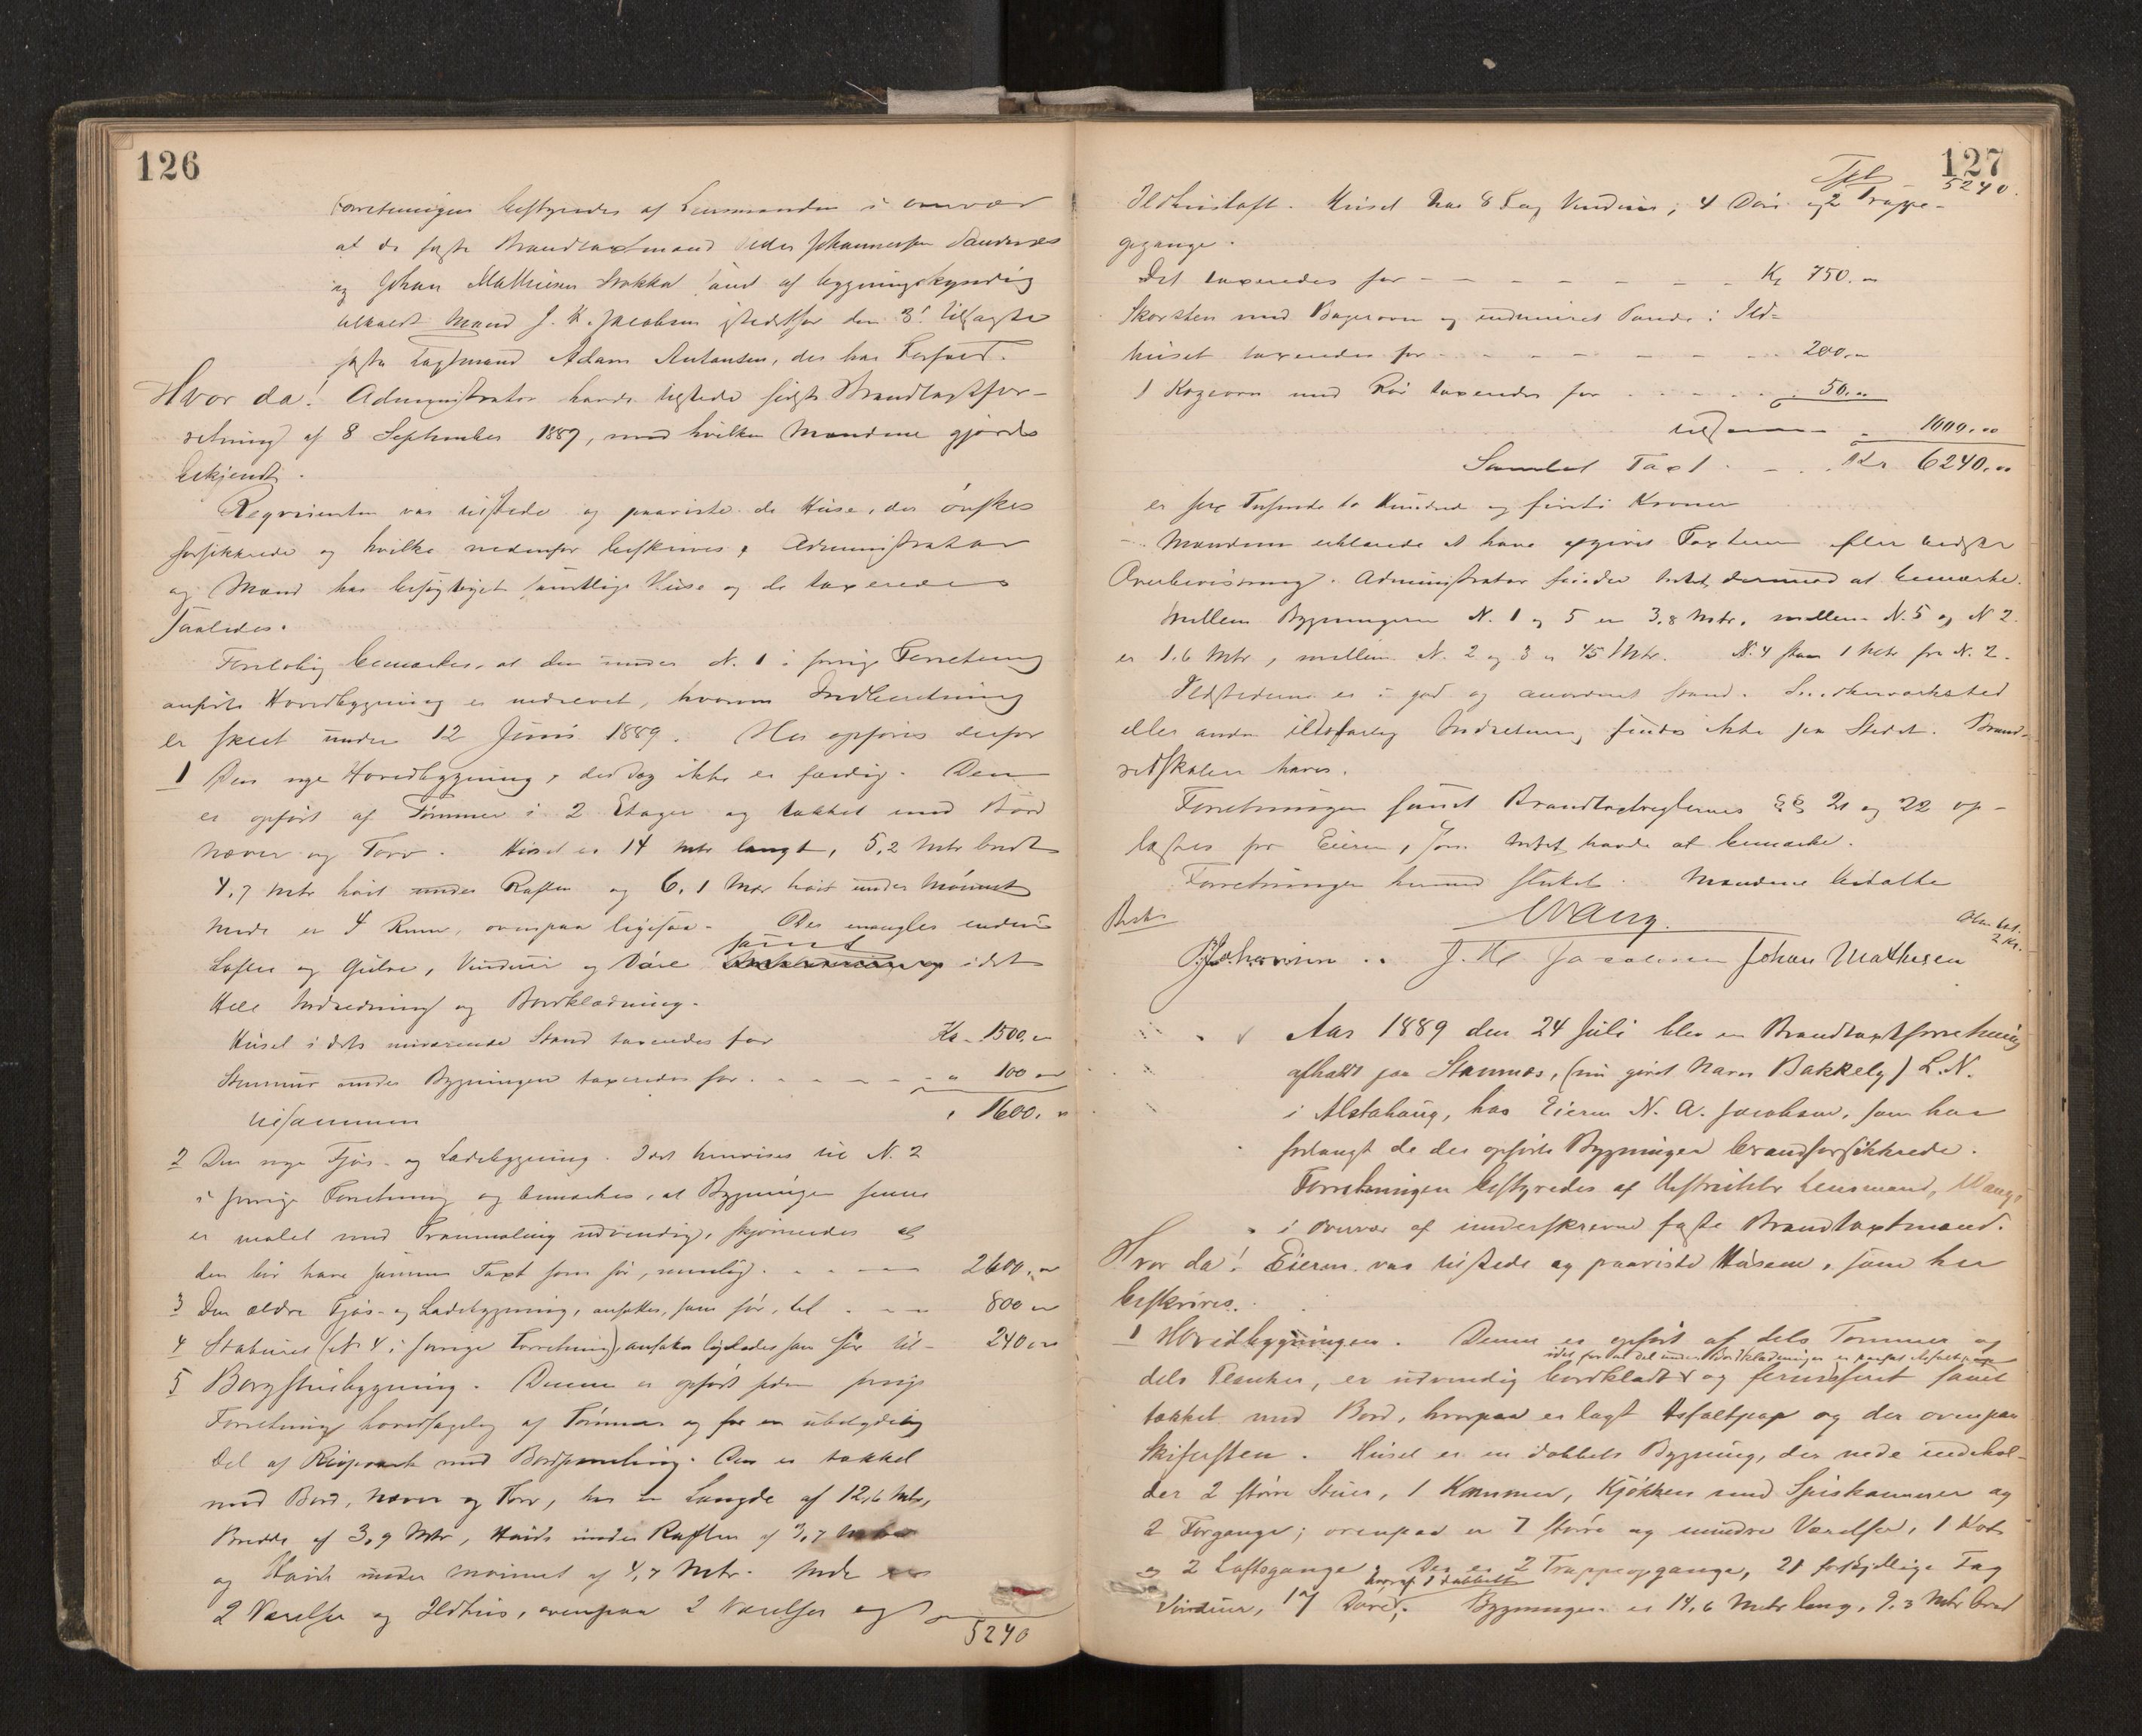 126
Forretningen bestyredes af Lensmanden i overvær
af de faste Brandtaxtmænd Peder Johannessen Sandnes
og Johan Mathiesen Stokka samt af bygningskyndig
tilkaldt Mand J. K. Jacobsen istedetfor den 3die tilsagte
faste Taxtmand Adam Antonsen, der har Forfald.
Hvor da! Administrator havde tilstede sidste Brandtaxtfor-
retning af 8 September 1887, med hvilken Mændene gjordes
bekjendt.
Reqvirenten var tilstede og paaviste de Huse, der ønskes
forsikkrede og hvilke nedenfor beskrives. Administrator
og Mænd har besigtiget samtlige Huse og de taxeredes
saaledes.
Foreløbig bemærkes, at den under N. 1 i forrige Forretning
anførte Hovedbygning er nedrevet, hvorom Indberetning
er skeet under 12 Juni 1889. Her opføres derfor
1 Den nye Hovedbygning, der dog ikke er færdig. Den
er opført af Tømmer i 2 Etager og takket med Bord
Næver og Torv. Huset er 14 Mtr langt, 5,2 Mtr bredt
4,7 Mtr høit under Raften og 6,1 Mtr høit under Mønnet
Nede er 4 Rum, ovenpaa ligesaa. Der mangler endnu
Lofter og Gulve, Vinduer og Døre samt idet
Hele Indredning og Bordklædning.
Huset i dets nuværende Stand taxeredes for Kr. 1500,00
Stenmur under Bygningen taxeredes for - - - - " 100 00
tilsammen " 1600,00
2 Den nye Fjøs- og Ladebygning. Idet henvises til N. 2
i forrige Forretning og bemærkes, at Bygningen senere
er malet med Tranmaling udvendig, skjønnedes at
den bør have samme Taxt som før, nemlig - - - 2600,00
3 Den ældre Fjøs- og Ladebygning, ansattes, som før, til - - - 800 00
4 Staburet (N. 4 i forrige Forretning) ansattes ligeledes som før til - 240 00
5 Borgstuebygning. Denne er opført siden forrige
Forretning hovedsagelig af Tømmer og for en ubetydelig
Del af Reisværk med Bordpaneling. Den er takket
med Bord, Næver og Torv, har en Længde af 12,6 Mtr,
Bredde af 3,9 Mtr, Høide under Raften af 3,7 Meter
og Høide under Mønnet af 4,7 Mtr. Nede er
2 Værelser og Ildhus, ovenpaa 2 Værelser og
5240
127
Tpt 5240.
Ildhusloft. Huset har 8 Fag Vinduer, 4 Døre og 2 Trappe-
gange.
Det taxeredes for - - - - - - - Kr 750,00
Skorsten med Bagerovn og indmuret Pande i Ild-
huset taxeredes for - - - - - - - 200,00
1 Kogeovn med Rør taxeredes for - - - - - 50,00
tilsammen - 1000,00
Samlet Taxt - - - Kr 6240,00
er sex Tusinde to Hundrede og firti Kroner
Mændene erklærede at have afgivet Taxten efter bedste
Overbevisning. Administrator finder Intet dermed at bemærke.
Mellem Bygningerne N. 1 og 5 er 3,8 Mtr, mellem N. 5 og N 2.
er 1,6 Mtr, mellem N. 2 og 3 er 45 Mtr. N. 4 staar 1 Mtr fra N. 2.
Ildstederne er i god og anordnet Stand. Snedkerværksted
eller anden ildsfarlig Indretning findes ikke paa Stedet. Brand-
redskaber haves.
Forretningen samt Brandtaxtreglernes §§ 21 og 22 op-
læstes for Eieren, som Intet havde at bemærke.
Forretningen hermed sluttet. Mændene betalte
Wang.
P. Johannesen J. K. Jacobsen Johan Mathisen
Aar 1889 den 24 Juli blev en Brandtaxtforretning
afholdt paa Stamnes, (nu givet Navn Bakkely) L. N.
i Alstahaug, hos Eieren N. A. Jacobsen, som har
forlangt de der opførte Bygninger brandforsikkrede.
Forretningen bestyredes af Distriktets Lensmand, Wang,
i Overvær af underskrevne faste Brandtaxtmænd.
Hvor da! Eieren var tilstede og paaviste Husene, som her
beskrives.
1 Hovedbygningen. Denne er opført af dels Tømmer og
idet for en Del under Bordklædningen er paasat Asfaltpap
dels Planker, er udvendig bordklædt og ferniseret samt
takket med Bord, hvorpaa er lagt Asfaltpap og der ovenpaa
Skifersten. Huset er en dobbelt Bygning, der nede indehol-
der 2 større Stuer, 1 Kammer, Kjøkken med Spiskammer og
2 Forgange; ovenpaa er 7 større og mindre Værelser, 1 Kot
og 2 Loftsgange. Der er 2 Trappeopgange, 21 forskjellige Fag
hvoraf 1 dobbelt
Vinduer, 17 Døre. Bygningen er 14,6 Mtr lang, 9,3 Mtr bred